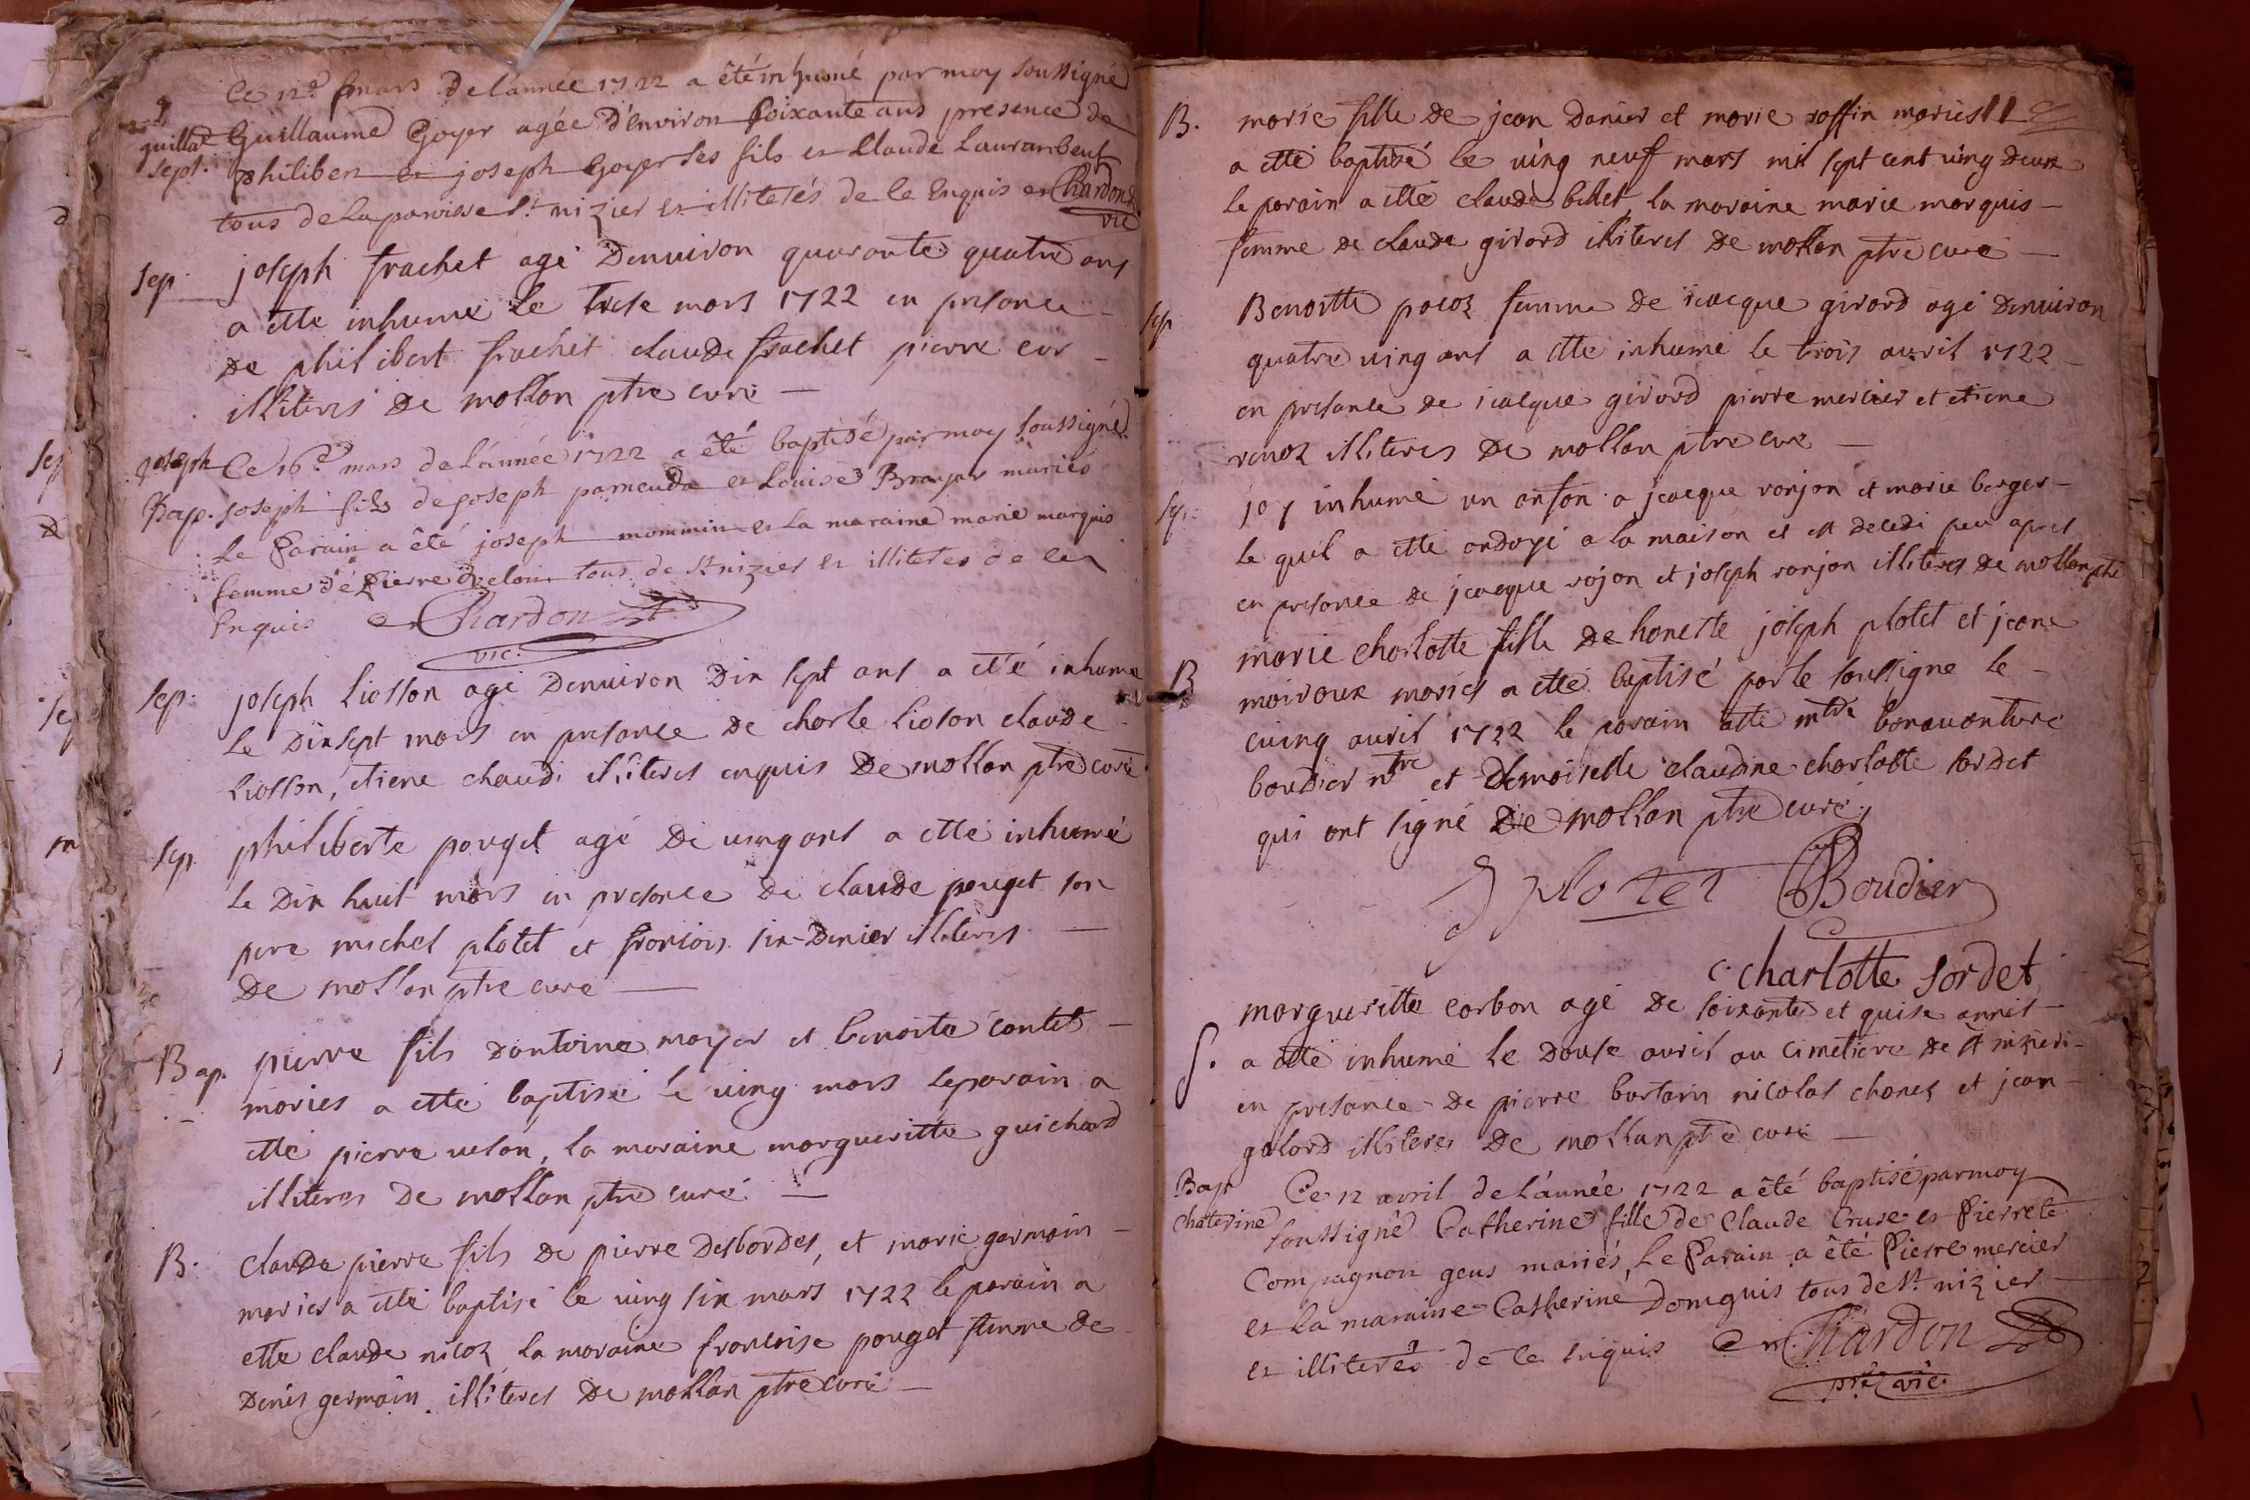 Ce 12.e mars de l'année 1722 a été inhumé par moy soussigné
guill.e Guillaume Goyer agée d'environ soixante ans presence de
sept. philibert et joseph Goyer ses fils et Claude Lauranbeuf
tous de la paroisse St nizier et illiterés de ce Enquis Chardon
vic
sep. joseph frachet agé denuiron quarante quatre ans
a etté inhumé le trese mars 1722 en presance
de philibert frachet claude frachet pierre
illiteres De mollan ptre curé
joseph Ce 16.e mars de l'année 1722 a été baptisé par moy soussigné
Bap. joseph fils de joseph et Louise mariés
Le Parain a été joseph mommin et la maraine marie marquis
femme de Pierre tous de St nizier et illiteres de ce
Enquis Chardon
vic.
sep. joseph liosson agé denuiron Dix sept ans a etté inhumé
le Dixsept mars en presance de charle lioson claude
liosson, etiene chaudi illiteres enquis De mollan ptre curé
sep. philiberte pouget agé De uing ans a etté inhumé
le Dix huit mars en presance de claude pouget son
pere michel plotet et francois six-Denier illiteres
De mollan ptre curé
Bap. pierre fils dantoine moyer et benoite contet
mariés a etté baptisé le uing mars le parain a
etté pierre uelon, la maraine margueritte guichard
illiteres De mollan ptre curé
B. claude pierre fils de pierre Desbordes, et marie germain
mariés a etté baptisé le uing six mars 1722 le parain a
etté claude nicoz la maraine francoise pouget femme de
Denis germain illiteres De mollan ptre curé
B. marie fille de jean Danier et marie roffin mariés
a etté baptisé le uing neuf mars mil sept cent uing deux
le parain a etté claude billet la maraine marie marquis
femme de claude girard illiteres De mollan ptre curé
sep Benoitte pocoz femme de iacque girard agé denuiron
quatre uing ans a etté inhumé le trois auril 1722
en presance de iacque girard pierre mercier et etiene
renoz illiteres De mollan ptre curé
sep. jay inhumé un anfan a jacque ronjon et marie berger
le quil a etté ondoyé a la maison et est decedé peu apres
en presance de jacque rojon et joseph ronjon illiteres De mollan ptre
B marie charlotte fille de honeste joseph plotet et jeane
moiroux mariés a etté baptisé par le soussigne le
cuinq auril 1722 le parain a etté bonauanture
boudier ntre et Demoiselle claudine charlotte sordet
qui ont signé De mollan ptre curé
J plotet Boudier
c. charlotte sordet
S. margueritte corbon agé de soixante et quise annés
a etté inhumé le Douse auril au cimetiere de st nizier
en presance de pierre bartarin nicolas chanel et jean
golord illiteres De mollan ptre curé
Bap Ce 12 avril de l'année 1722 a été baptisé par moy
Chaterine soussigné Catherine fille de Claude Cruse et Pierrete
Compagnon gens mariés, Le Parain a été Pierre mercier
et la maraine Catherine Domguis tous de St. nizier
et illiterés de ce enquis Chardon
ptre vic.